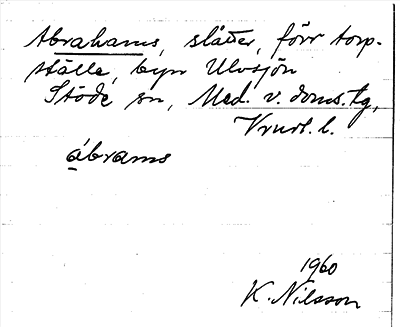 Abrahams, slåtter, förr torp-
ställe, byn Ulvsjön
Stöde sn, Med. v. doms. tg,
Vnrl. l.
ábrams
1960
K. Nilsson